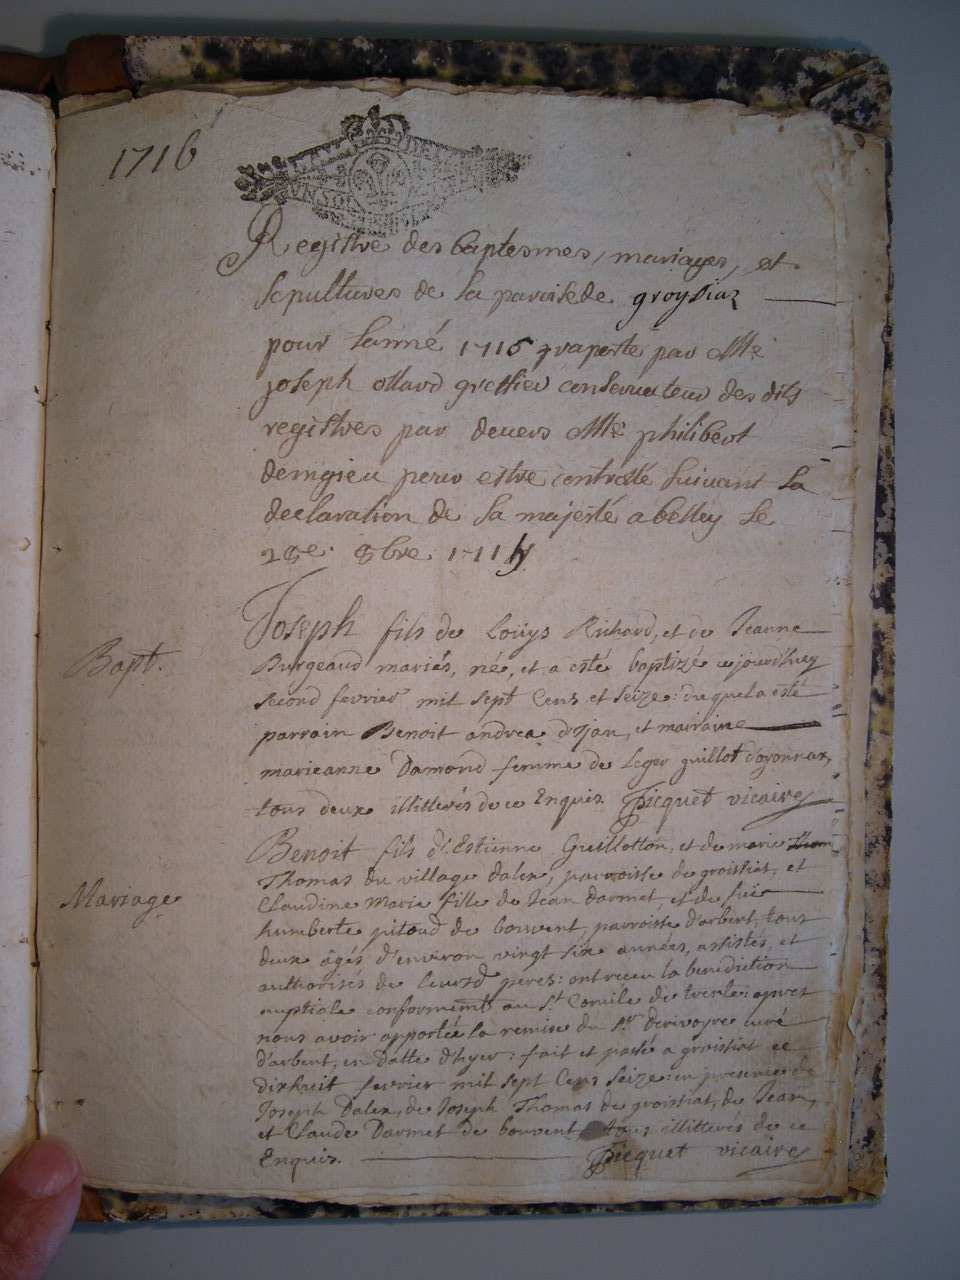 1716
Registre des baptesmes, mariages, et
sepultures de la paroisse de groyssiaz
pour lanné 1716 par Me
joseph ollard greffier conservateur des dits
registres par devers Me philibert
demigieu pour estre controllé suivant la
declaration de sa majesté a belley le
28e. 8bre. 1715
Bapt.
Joseph fils de Loüys Richard, et de Jeanne
Burgeaud mariés, né, et a esté baptizé ce jourdhuy
second fevrier mil sept Cens et seize: duquel a esté
parrain Benoit andrea et marraine
marieanne Damond femme de Leger guillot d'oyonnax,
tous deux illitterés de ce Enquis. Picquet vicaire
Mariage
Benoit fils d'Estienne Guillotton, et de marie Thom
Thomas du village dalex, parroisse de groissiat, et
Claudine Marie fille de Jean darmet, et de fuë
humberte pitoud de bouvent, parroisse d'arbent, tous
deux âgés d'environ vingt six années, assistés, et
authorisés de leursd peres: ont receu la benediction
nuptiale conformemt au St Concile de trente: apres
nous avoir apporté la remise du Sr derivoyre curé
d'arbent, en datte d'hyer: fait et passé a groissiat ce
dixhuit fevrier mil sept Cens seize: en presence de
Joseph Dalex, de Joseph Thomas de groissiat, de Jean,
et Claude Darmet de bouvent tous illitterés de ce
Enquis. Picquet vicaire